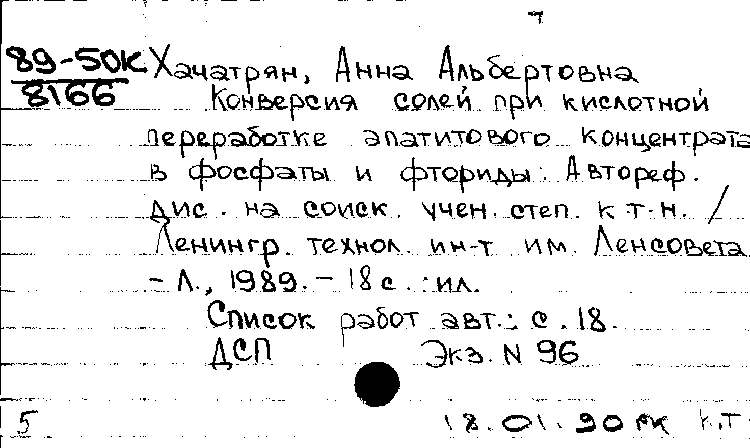 89-50К Хачатрян, Анна Альбертовна
8166 Конверсия солей при кислотной
переработке апатитового концентрата
в фосфаты и фториды: Автореф.
дис. на соиск. учен. степ. к.т.н. /
Ленингр. технол. ин-т им. Ленсовета
- Л., 1989. - 18 с. : ил.
Список работ авт.: с. 18.
ДСП Экз. N 96
5 18.01.90 К.Т